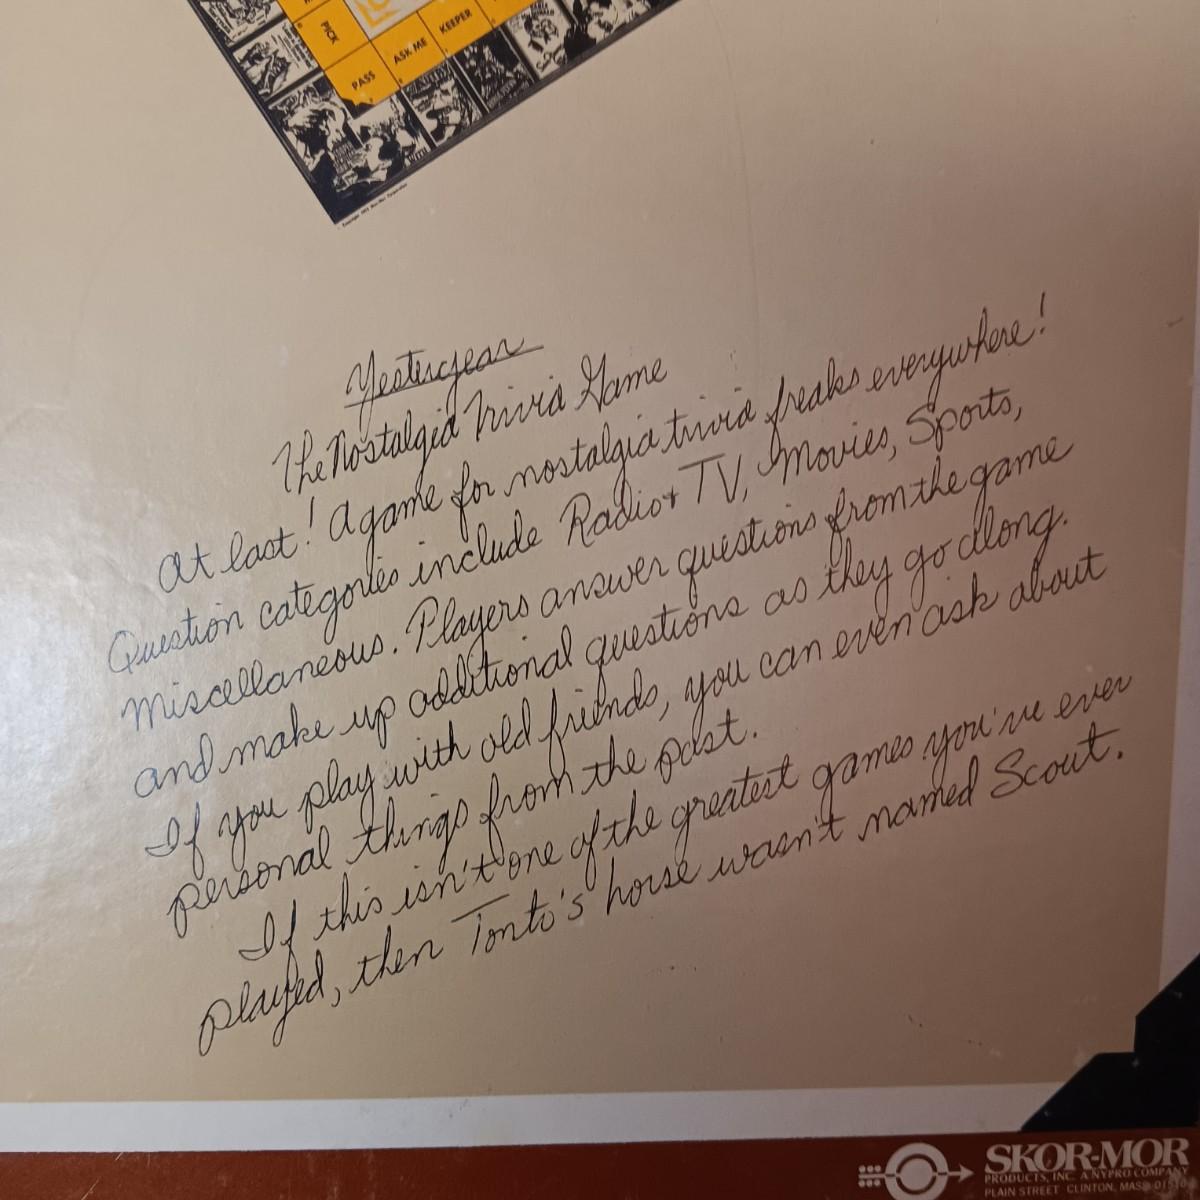 PICK
PASS
ASK ME
KEEPER
Yesteryear
The Nostalgia Trivia Game
At last! A game for nostalgia trivia freaks everywhere!
Question categories include Radio + TV, Movies, Sports,
Miscellaneous. Players answer questions from the game
and make up additional questions as they go along.
If you play with old friends, you can even ask about
personal things from the past.
If this isn't one of the greatest games you've ever
played, then Tonto's horse wasn't named Scout.
SKOR-MOR
PRODUCTS, INC. A NYPRO COMPANY
PLAIN STREET CLINTON, MASS.